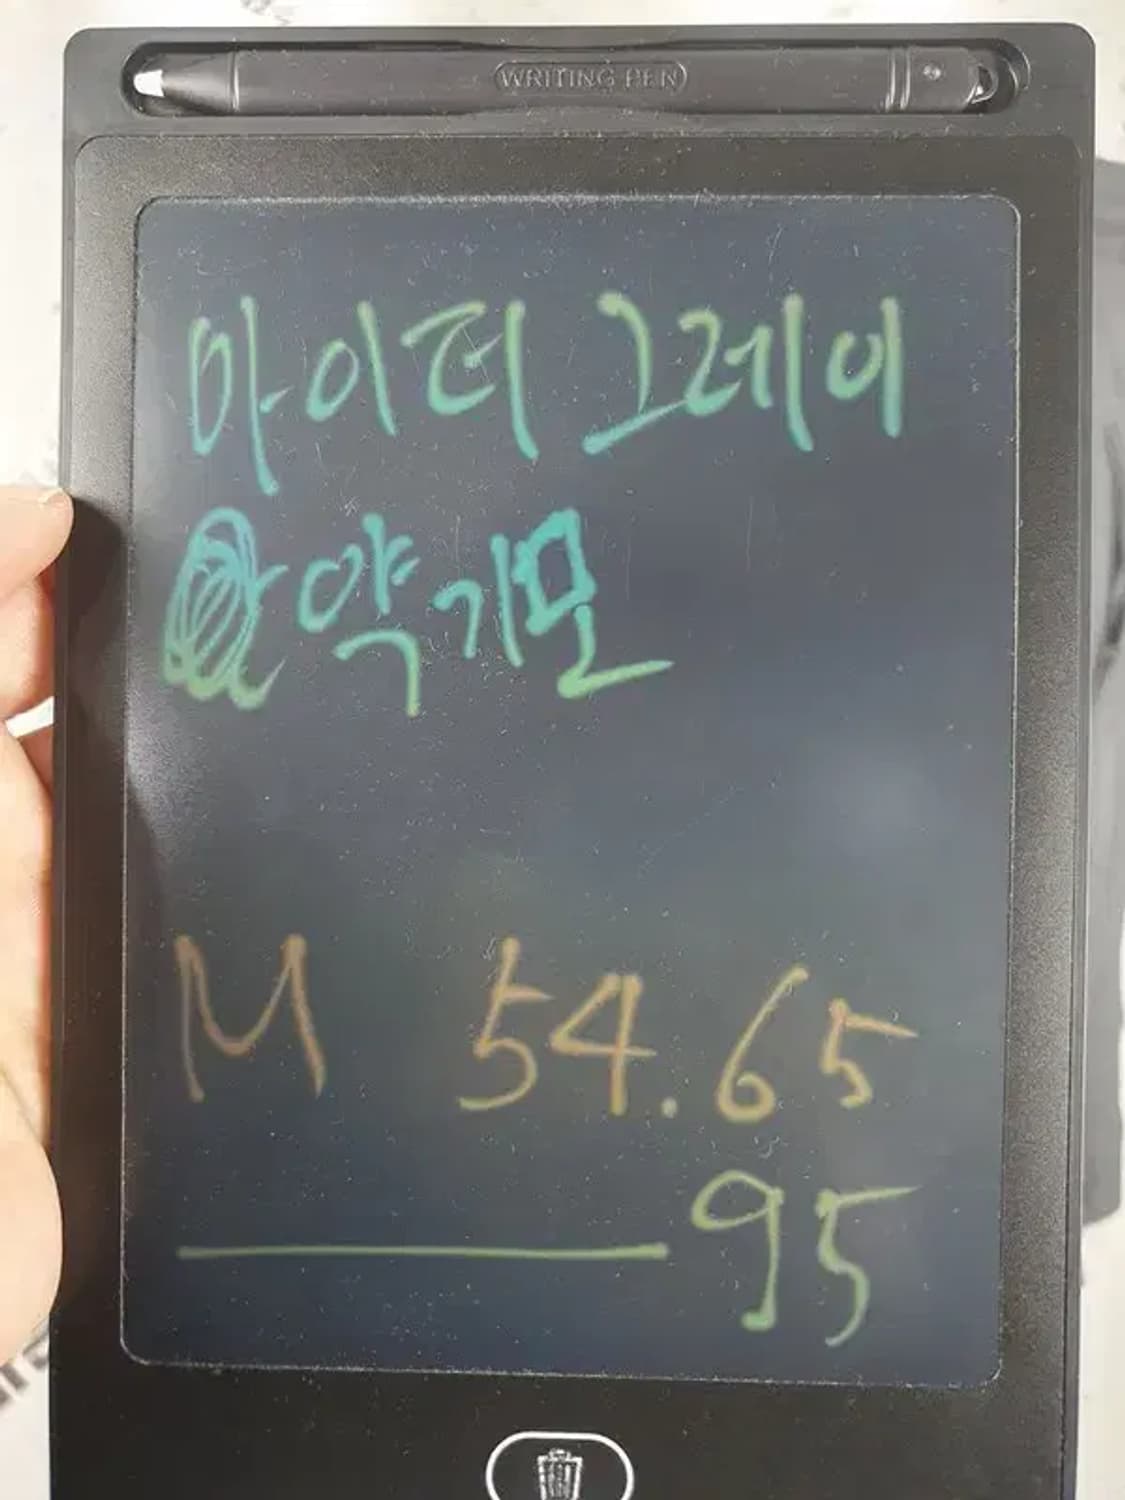 WRITING PEN
아이더 그레이
약기모
M 54.65
95